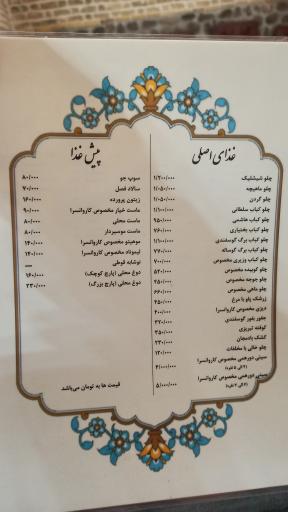 غذای اصلی
چلو شیشلیک ۱/۲۰۰/۰۰۰
چلو ماهیچه ۱/۰۵۰/۰۰۰
چلو گردن ۱/۰۵۰/۰۰۰
چلو کباب سلطانی ۱/۱۰۰/۰۰۰
چلو کباب هاشمی ۹۵۰/۰۰۰
چلو کباب بختیاری ۷۶۰/۰۰۰
چلو کباب برگ گوسفندی ۱/۱۰۰/۰۰۰
چلو کباب برگ گوساله
چلو کباب وزیری مخصوص ۷۰۰/۰۰۰
چلو کوبیده مخصوص ۵۲۰/۰۰۰
چلو جوجه مخصوص ۴۵۰/۰۰۰
چلو ماهی مخصوص ۶۶۰/۰۰۰
زرشک پلو با مرغ ۴۵۰/۰۰۰
دیزی مخصوص کاروانسرا
چغور بغور گوسفندی
کوفته تبریزی ۳۵۰/۰۰۰
کشک بادمجان ۲۳۰/۰۰۰
چلو خالی با مخلفات ۱۲۰/۰۰۰
سینی دورهمی مخصوص کاروانسرا ۴/۰۰۰/۰۰۰
سینی دورهمی مخصوص کاروانسرا ۵/۰۰۰/۰۰۰
پیش غذا
سوپ جو ۸۰/۰۰۰
سالاد فصل ۷۰/۰۰۰
زیتون پرورده ۱۶۰/۰۰۰
ماست خیار مخصوص کاروانسرا ۹۰/۰۰۰
ماست محلی ۸۰/۰۰۰
ماست موسیردار ۸۰/۰۰۰
موهیتو مخصوص کاروانسرا ۱۴۰/۰۰۰
لیموناد مخصوص کاروانسرا ۱۴۰/۰۰۰
نوشابه قوطی —
دوغ محلی (پارچ کوچک) ۱۶۰/۰۰۰
دوغ محلی (پارچ بزرگ) ۲۳۰/۰۰۰
قیمت ها به تومان می‌باشد